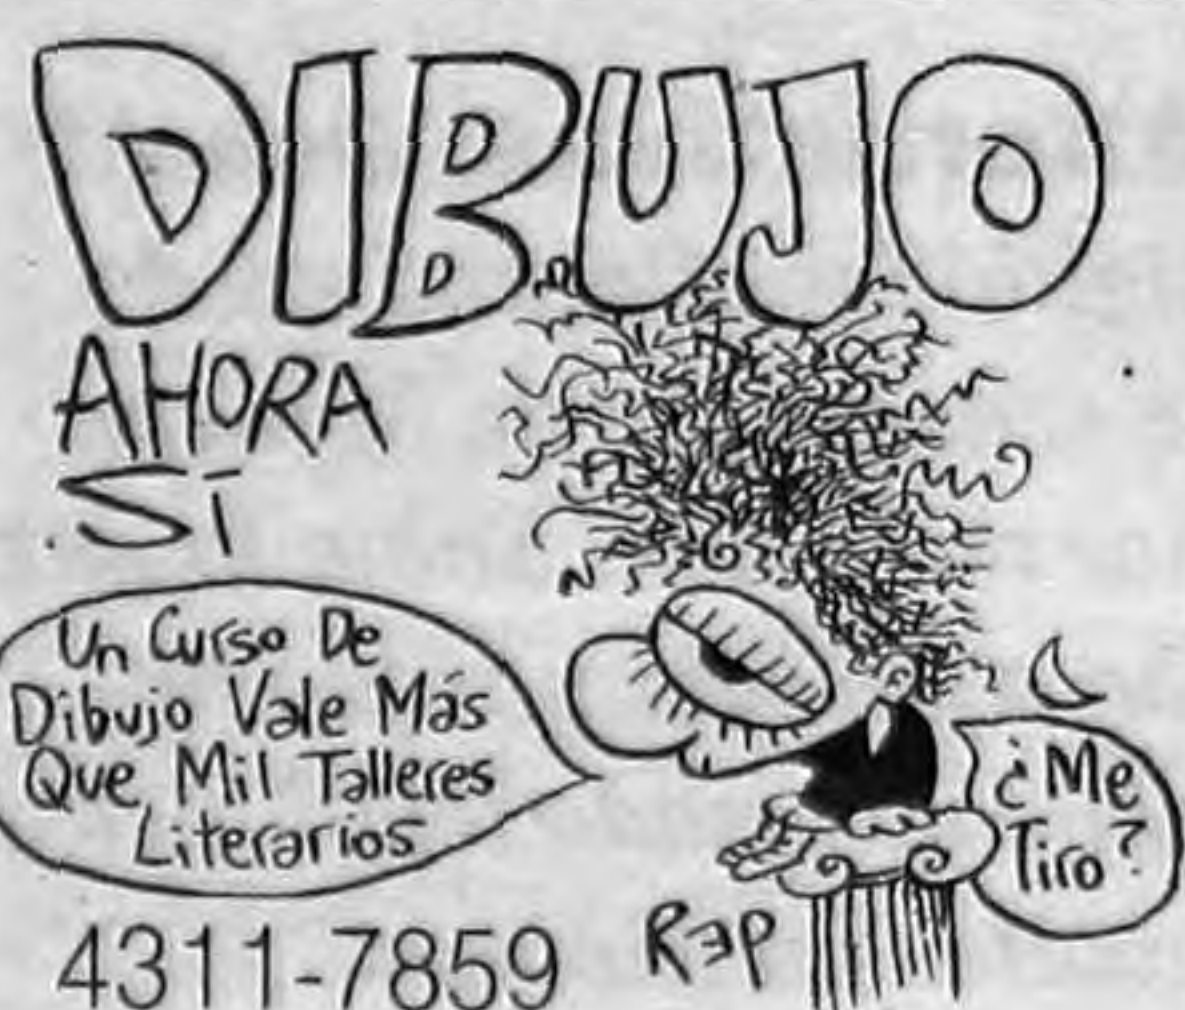 DIBUJO
AHORA
SÍ
Un Curso De
Dibujo Vale Más
Que Mil Talleres
Literarios
¿Me
Tiro?
REP
4311-7859